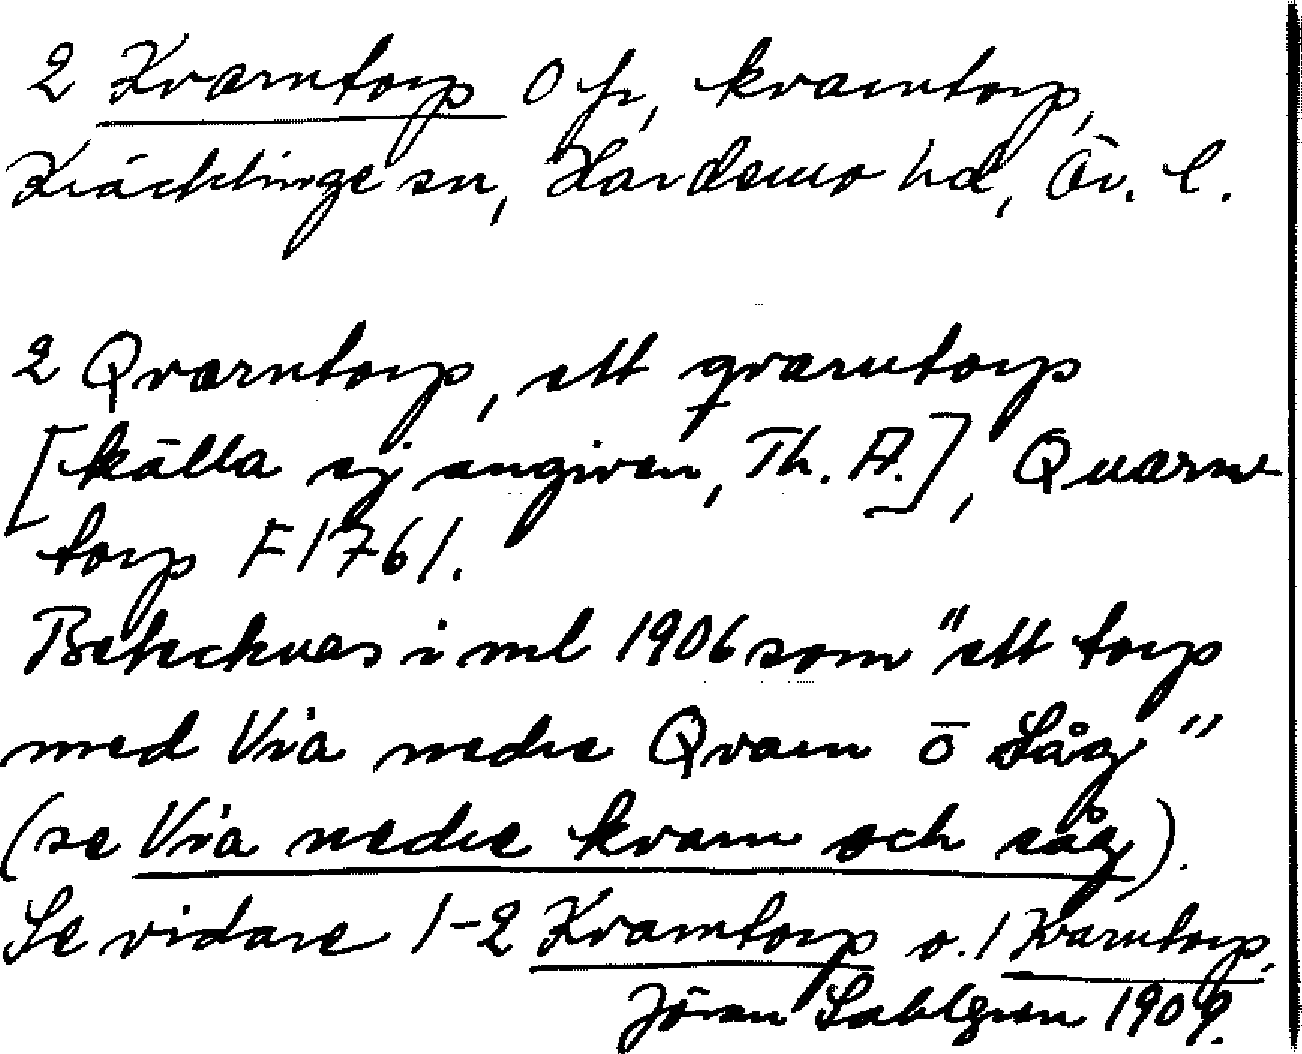 2 Kvarntorp Ofr, kvarntorp,
Kräcklinge sn, Hardemo hd, Ör. l.
2 Qvarntorp, ett qvarntorp
[källa ej angiven, Th. A.], Quarne
torp F 1761.
Betecknas i ml 1906 som "ett torp
med Via nedre Qvarn o Såg"
(se Via nedre kvarn och såg).
Se vidare 1-2 Kvarntorp o. 1 Kvarntorp.
Jöran Sahlgren 1909.